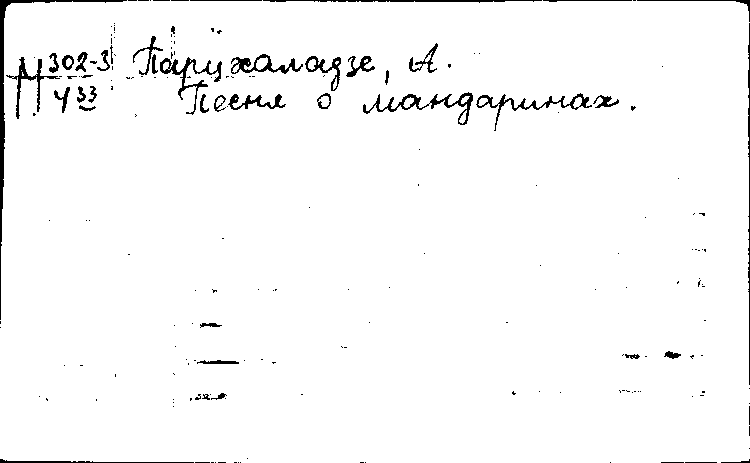 М 302-3 Парцхаладзе, А.
Ч 33 Песня о мандаринах.